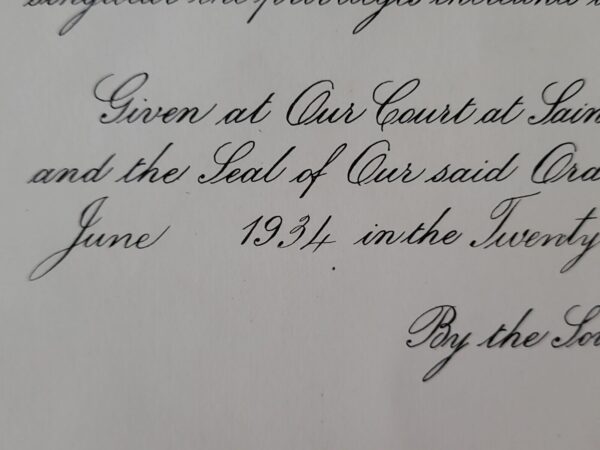 the privileges
Given at Our Court at Sain
and the Seal of Our said Ord
June 1934 in the Twenty
By the Sov